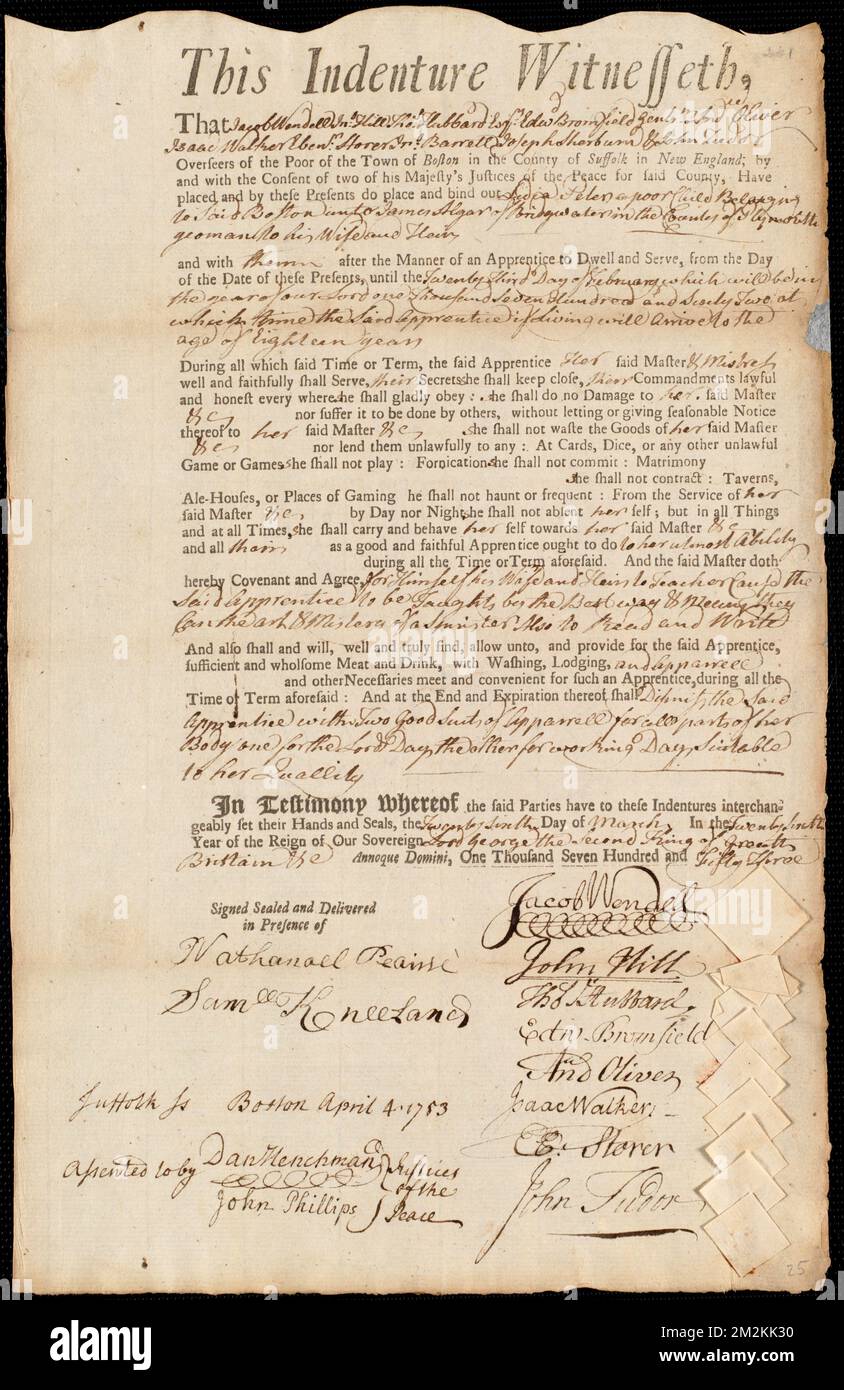 This Indenture Witnesseth,
That Jacob Wendell Jnr. Hill Tho.s Hubbard Esqrs Edwd Bromfield Gentn. And.w Oliver
Isaac Walker Ebenr. Storer Jnr. Barrett Joseph Sherburn & John Tudor
Overseers of the Poor of the Town of Boston in the County of Suffolk in New England; by
and with the Consent of two of his Majesty's Justices of the Peace for said County, Have
placed and by these Presents do place and bind out Lydia Peters a poor Child Belonging
to Said Boston unto James Algar of Bridgwater in the County of Plymouth
yeoman to his Wife and Heirs
and with them after the Manner of an Apprentice to Dwell and Serve, from the Day
of the Date of these Presents, until the Twenty Third Day of February which will be in
the year of our Lord one Thousand Seven Hundred and Sixty Two at
which time the Said Apprentice if living will arrive to the
age of Eighteen years
During all which said Time or Term, the said Apprentice Her said Master & Mistress
well and faithfully shall Serve, their Secrets she shall keep close, their Commandments lawful
and honest every where she shall gladly obey : she shall do no Damage to her said Master
&c nor suffer it to be done by others, without letting or giving seasonable Notice
thereof to her said Master &c she shall not waste the Goods of her said Master
&c nor lend them unlawfully to any : At Cards, Dice, or any other unlawful
Game or Games she shall not play : Fornication she shall not commit : Matrimony
she shall not contract : Taverns,
Ale-Houses, or Places of Gaming he shall not haunt or frequent : From the Service of her
said Master &c by Day nor Night she shall not absent her self; but in all Things
and at all Times, she shall carry and behave her self towards her said Master &c
and all theirs as a good and faithful Apprentice ought to do to her utmost Ability
during all the Time or Term aforesaid. And the said Master doth
hereby Covenant and Agree, for Himself his Wife and Heirs to Teach or Cause the
Said Apprentice to be Taught by the Best way & Means they
Can the art & Mistery of a Spinster Also to Read and Write
And also shall and will, well and truly find, allow unto, and provide for the said Apprentice,
sufficient and wholsome Meat and Drink, with Washing, Lodging, and apparrell
and other Necessaries meet and convenient for such an Apprentice, during all the
Time or Term aforesaid : And at the End and Expiration thereof shall Dismiss the Said
Apprentice with Two Good Suits of Apparrell for all parts of her
Body one for the Lords Day, the other for working Days Suitable
to her Quallity
In Testimony whereof the said Parties have to these Indentures interchan-
geably set their Hands and Seals, the Twenty Sixth Day of March In the Twenty Sixth
Year of the Reign of Our Sovereign Lord George the Second King of Great
Brittain &c Annoque Domini, One Thousand Seven Hundred and Fifty Three
Signed Sealed and Delivered
in Presence of
Nathanael Peairse
Samll Kneeland
Jacob Wendell
John Hill
Thos Hubbard
Edw. Bromfield
And Oliver
Isaac Walker
E. Storer
John Tudor
Suffolk Ss Boston April 4. 1753
Assented to by Dan Henchman
John Phillips
Justices
of the
Peace
25
alamy
Image ID: 2M2KK30
www.alamy.com